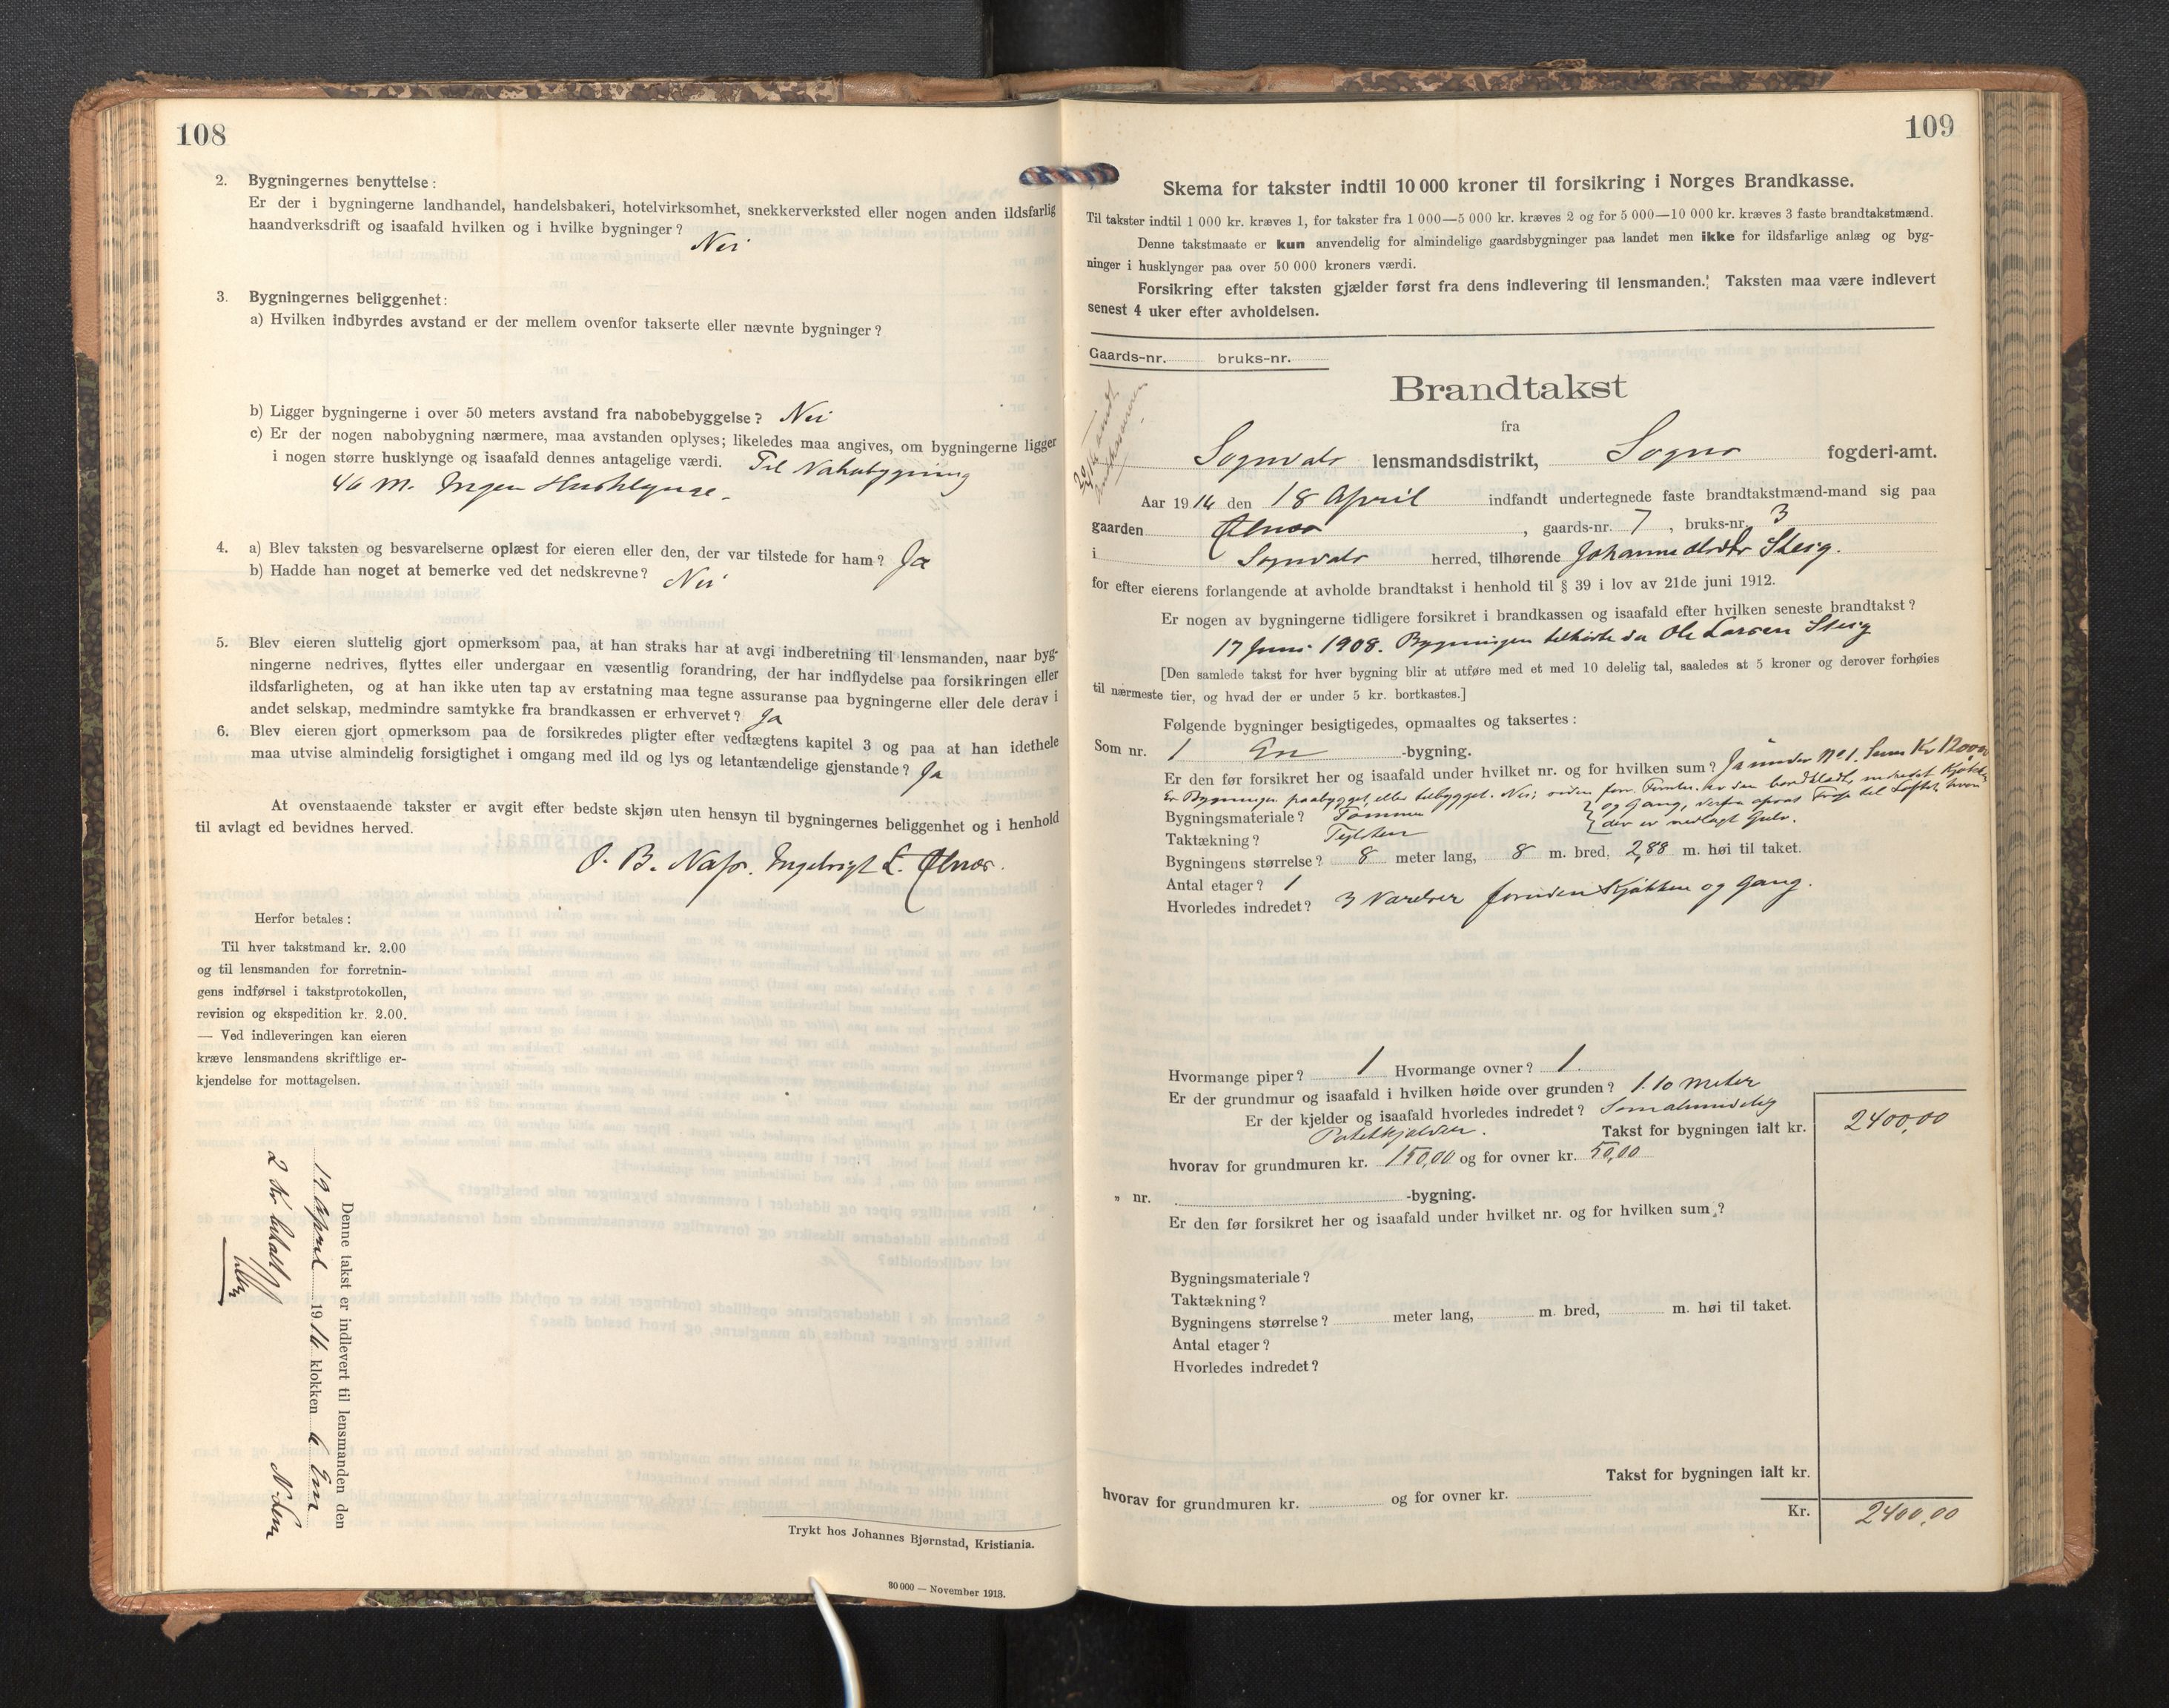 108
2. Bygningernes benyttelse:
Er der i bygningerne landhandel, handelsbakeri, hotelvirksomhet, snekkerverksted eller nogen anden ildsfarlig
haandverksdrift og isaafald hvilken og i hvilke bygninger? Nei
3. Bygningernes beliggenhet:
a) Hvilken indbyrdes avstand er der mellem ovenfor takserte eller nævnte bygninger?
b) Ligger bygningerne i over 50 meters avstand fra nabobebyggelse? Nei
c) Er der nogen nabobygning nærmere, maa avstanden oplyses; likeledes maa angives, om bygningerne ligger
i nogen større husklynge og isaafald dennes antagelige værdi. Til Nabobygning
46 M. Ingen Husklynge.
4. a) Blev taksten og besvarelserne oplæst for eieren eller den, der var tilstede for ham? Ja
b) Hadde han noget at bemerke ved det nedskrevne? Nei
5. Blev eieren sluttelig gjort opmerksom paa, at han straks har at avgi indberetning til lensmanden, naar byg-
ningerne nedrives, flyttes eller undergaar en væsentlig forandring, der har indflydelse paa forsikringen eller
ildsfarligheten, og at han ikke uten tap av erstatning maa tegne assuranse paa bygningerne eller dele derav i
andet selskap, medmindre samtykke fra brandkassen er erhvervet? Ja
6. Blev eieren gjort opmerksom paa de forsikredes pligter efter vedtægtens kapitel 3 og paa at han idethele
maa utvise almindelig forsigtighet i omgang med ild og lys og letantændelige gjenstande? Ja
At ovenstaaende takster er avgit efter bedste skjøn uten hensyn til bygningernes beliggenhet og i henhold
til avlagt ed bevidnes herved.
O. B. Næss. Ingebrigt L.
Herfor betales:
Til hver takstmand kr. 2.00
og til lensmanden for forretnin-
gens indførsel i takstprotokollen,
revision og ekspedition kr. 2.00.
— Ved indleveringen kan eieren
kræve lensmandens skriftlige er-
kjendelse for mottagelsen.
Denne takst er indlevert til lensmanden den
19 April 1916 klokken 6 Em
2 Kr betalt
Trykt hos Johannes Bjørnstad, Kristiania.
30 000 — November 1913.
109
Skema for takster indtil 10 000 kroner til forsikring i Norges Brandkasse.
Til takster indtil 1 000 kr. kræves 1, for takster fra 1 000—5 000 kr. kræves 2 og for 5 000—10 000 kr. kræves 3 faste brandtakstmænd.
Denne takstmaate er kun anvendelig for almindelige gaardsbygninger paa landet men ikke for ildsfarlige anlæg og byg-
ninger i husklynger paa over 50 000 kroners værdi.
Forsikring efter taksten gjælder først fra dens indlevering til lensmanden. Taksten maa være indlevert
senest 4 uker efter avholdelsen.
Gaards-nr. bruks-nr.
Brandtakst
fra
Sogndals lensmandsdistrikt, Sogns fogderi-amt.
Aar 1916 den 18 April indfandt undertegnede faste brandtakstmænd-mand sig paa
gaarden , gaards-nr. 7, bruks-nr. 3
i Sogndals herred, tilhørende Steig.
for efter eierens forlangende at avholde brandtakst i henhold til § 39 i lov av 21de juni 1912.
Er nogen av bygningerne tidligere forsikret i brandkassen og isaafald efter hvilken seneste brandtakst?
17 Juni 1908. Bygningen tilhørte da Ole Larsen Steig
[Den samlede takst for hver bygning blir at utføre med et med 10 delelig tal, saaledes at 5 kroner og derover forhøies
til nærmeste tier, og hvad der er under 5 kr. bortkastes.]
Følgende bygninger besigtigedes, opmaaltes og taksertes:
Som nr. 1 En -bygning.
Er den før forsikret her og isaafald under hvilket nr. og for hvilken sum? Ja under No 1. Sum Kr
Er Bygningen paabygget eller tilbygget. Nei;
Bygningsmateriale? Tømmer og Gang, til Loftet, hvor
Taktækning? Teglsten der er nedlagt Gulv.
Bygningens størrelse? 8 meter lang, 8 m. bred, 2,88 m. høi til taket.
Antal etager? 1
Hvorledes indredet? 3 Værelser foruden Kjøkken og Gang.
Hvormange piper? 1 Hvormange ovner? 1.
Er der grundmur og isaafald i hvilken høide over grunden? 1.10 meter
Er der kjelder og isaafald hvorledes indredet? Som almindelig
Potetkjelder. Takst for bygningen ialt kr. 2400,00
hvorav for grundmuren kr. 150,00 og for ovner kr. 50,00
„ nr. -bygning.
Er den før forsikret her og isaafald under hvilket nr. og for hvilken sum?
Bygningsmateriale?
Taktækning?
Bygningens størrelse? meter lang, m. bred, m. høi til taket.
Antal etager?
Hvorledes indredet?
Takst for bygningen ialt kr.
hvorav for grundmuren kr. og for ovner kr.
Kr. 2400,00